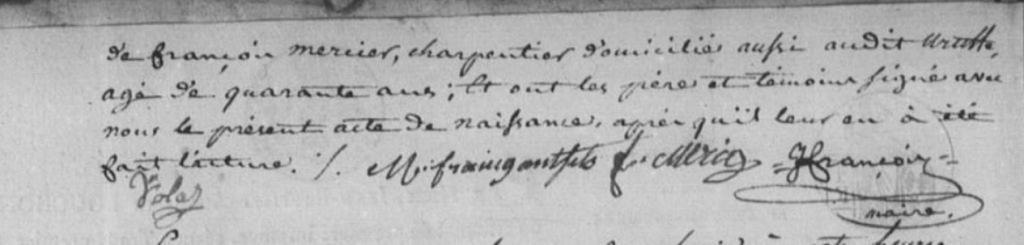 de françois mercier, charpentier domicilié aussi audit
agé de quarante ans; Et ont les père et témoins signé avec
nous le présent acte de naissance, après qu'il leur en à été
fait lecture. /. f. Mercier J françois
naire.